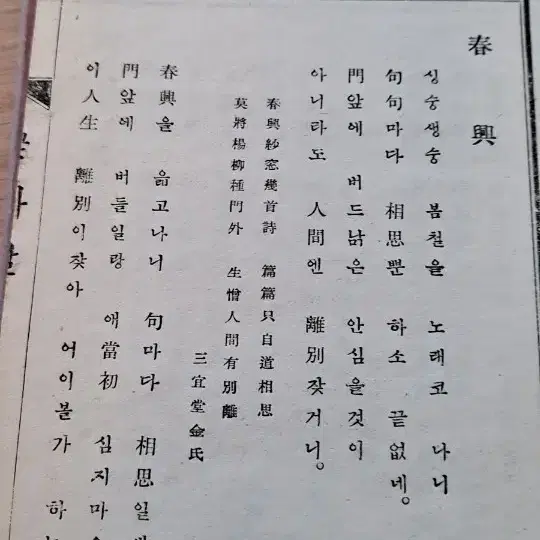 春興
싱숭생숭 봄철을 노래코 나니
句句마다 相思뿐 하소 끝없네。
門앞에 버드낡은 안심을것이
아니라도 人間엔 離別잦거니。
春興紗窓幾首詩 篇篇只自道相思
莫將楊柳種門外 生憎人間有別離
三宜堂金氏
春興을 읊고나니 句마다 相思일
門앞에 버들일랑 애當初 심지마
이人生 離別이잦아 어이볼가 하